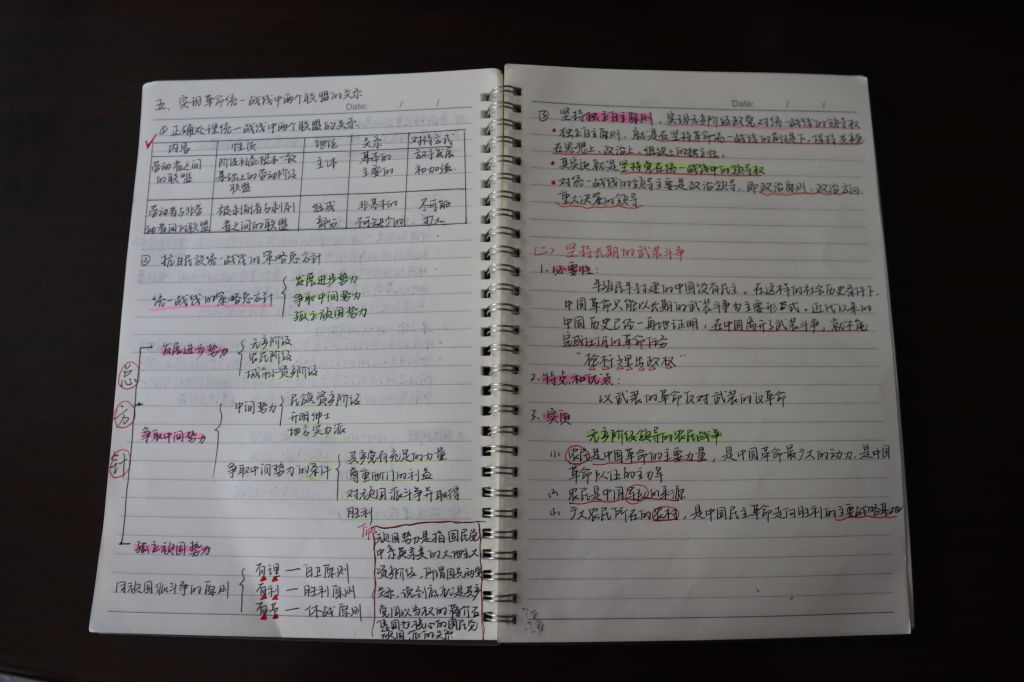 五、实现革命统一战线中两个联盟的关系
Date: / /
①正确处理统一战线中两个联盟的关系
内容 性质 地位 关系 对待方式
劳动者之间的联盟 阶级利益根本一致基础上的劳动阶级联盟 主体 基本的 主要的 和加强
劳动者与非劳动者间的联盟 被剥削者与剥削者之间的联盟 组成部分 非基本的 不可缺少的 尽可能扩大
② 抗日民族统一战线的策略总方针
统一战线的策略总方针
发展进步势力
争取中间势力
孤立顽固势力
总方针
发展进步势力
无产阶级
农民阶级
城市小资产阶级
争取中间势力
中间势力
民族资产阶级
开明绅士
地方实力派
争取中间势力的条件
共产党有充足的力量
尊重他们的利益
对顽固派斗争并取得
胜利
孤立顽固势力
同顽固派斗争的原则
有理—自卫原则
有利—胜利原则
有节—休战原则
顽固势力是指国民党
中亲英亲美的大地主大
资产阶级,所谓国共两党
关系,说到底就是共产
党同以当权的蒋介石
集团为核心的国民党
顽固派的关系
Date: / /
③ 坚持独立自主原则,实现无产阶级政党对统一战线的领导权
• 独立自主原则,就是在坚持革命统一战线的前提下,保持共产党
在思想上、政治上、组织上的独立性。
• 其实质就是坚持党在统一战线中的领导权
• 对统一战线的领导主要是政治领导,即政治原则、政治方向、
重大决策的领导
(二) 坚持长期的武装斗争
1. 必要性:
半殖民半封建的中国没有民主,在这样的社会历史条件下,
中国革命只能以长期的武装斗争为主要形式,近代以来的
中国历史已经一再地证明,在中国离开了武装斗争,就不能
完成任何的革命任务
“枪杆里出政权”
2. 特点和优点:
以武装的革命反对武装的反革命
3. 实质
无产阶级领导的农民战争
(1) 农民是中国革命的主要力量,是中国革命最广大的动力,是中国
革命队伍的主力军
(2) 农民是中国军队的来源
(3) 广大农民所在的农村,是中国民主革命走向胜利的主要战略基地